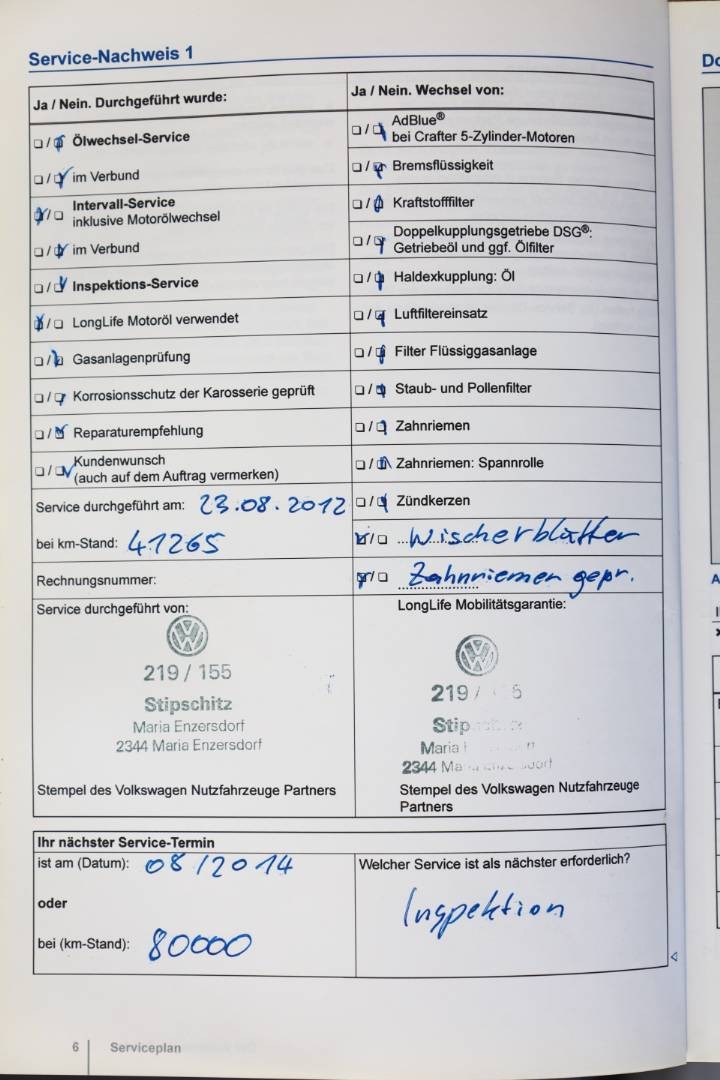 Service-Nachweis 1
Ja / Nein. Durchgeführt wurde:
Ölwechsel-Service
im Verbund
Intervall-Service
inklusive Motorölwechsel
im Verbund
Inspektions-Service
LongLife Motoröl verwendet
Gasanlagenprüfung
Korrosionsschutz der Karosserie geprüft
Reparaturempfehlung
Kundenwunsch
(auch auf dem Auftrag vermerken)
Service durchgeführt am: 23.08.2012
bei km-Stand: 41265
Rechnungsnummer:
Ja / Nein. Wechsel von:
AdBlue®
bei Crafter 5-Zylinder-Motoren
Bremsflüssigkeit
Kraftstofffilter
Doppelkupplungsgetriebe DSG®:
Getriebeöl und ggf. Ölfilter
Haldexkupplung: Öl
Luftfiltereinsatz
Filter Flüssiggasanlage
Staub- und Pollenfilter
Zahnriemen
Zahnriemen: Spannrolle
Zündkerzen
Wischerblätter
Zahnriemen gepr.
Service durchgeführt von:
219 / 155
Stipschitz
Maria Enzersdorf
2344 Maria Enzersdorf
Stempel des Volkswagen Nutzfahrzeuge Partners
LongLife Mobilitätsgarantie:
219 /
Maria
2344
Stempel des Volkswagen Nutzfahrzeuge
Partners
Ihr nächster Service-Termin
ist am (Datum): 08/2014
oder
bei (km-Stand): 80000
Welcher Service ist als nächster erforderlich?
Inspektion
6 Serviceplan